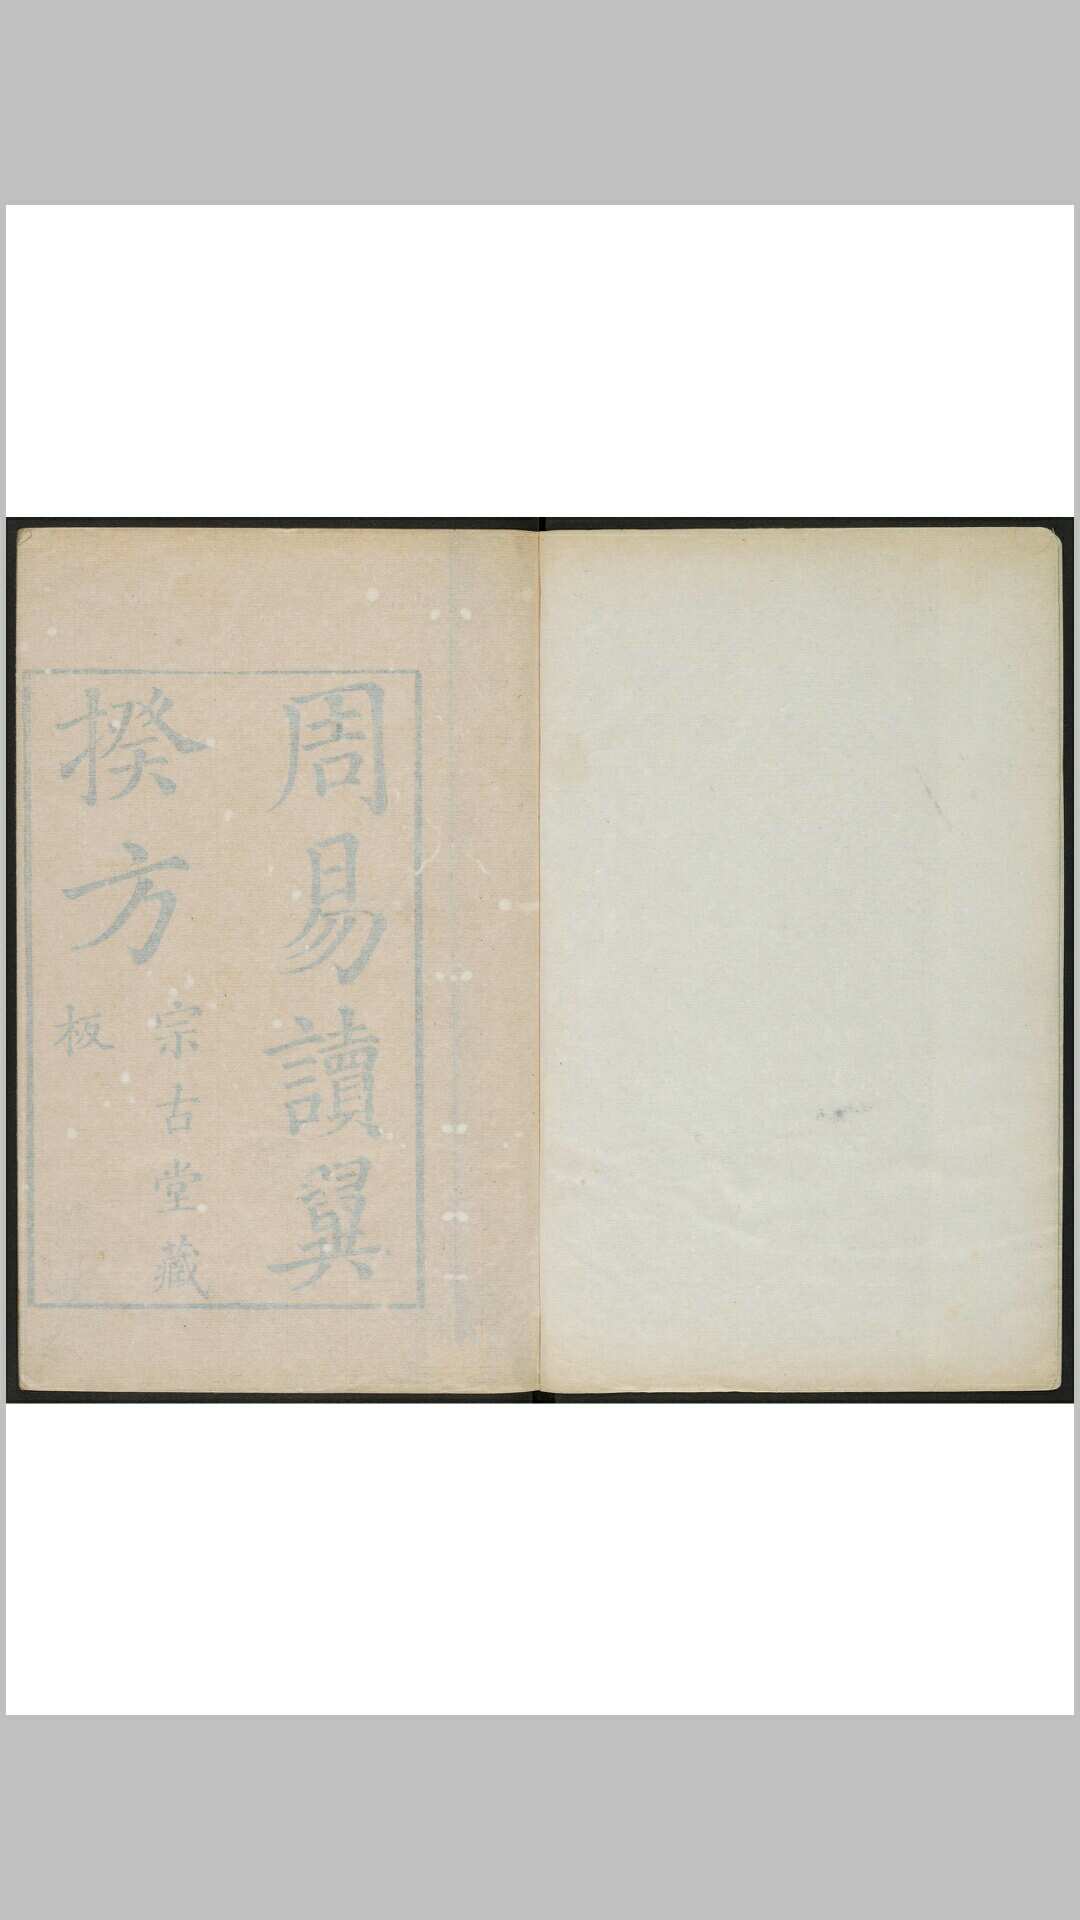 周易讀翼
揆方
宗古堂藏
板